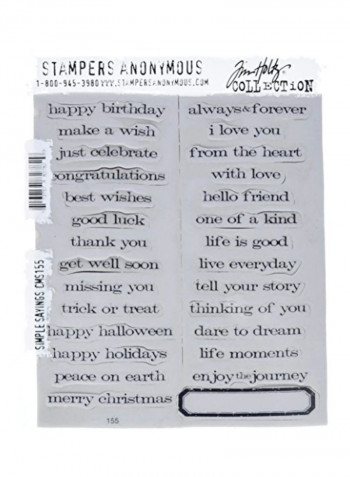 STAMPERS ANONYMOUS
1-800-945-3980 WWW.STAMPERSANONYMOUS.COM
Tim Holtz
COLLECTION
happy birthday
make a wish
just celebrate
congratulations
best wishes
good luck
thank you
get well soon
missing you
trick or treat
happy halloween
happy holidays
peace on earth
merry christmas
always&forever
i love you
from the heart
with love
hello friend
one of a kind
life is good
live everyday
tell your story
thinking of you
dare to dream
life moments
enjoy the journey
SIMPLE SAYINGS CMS155
155